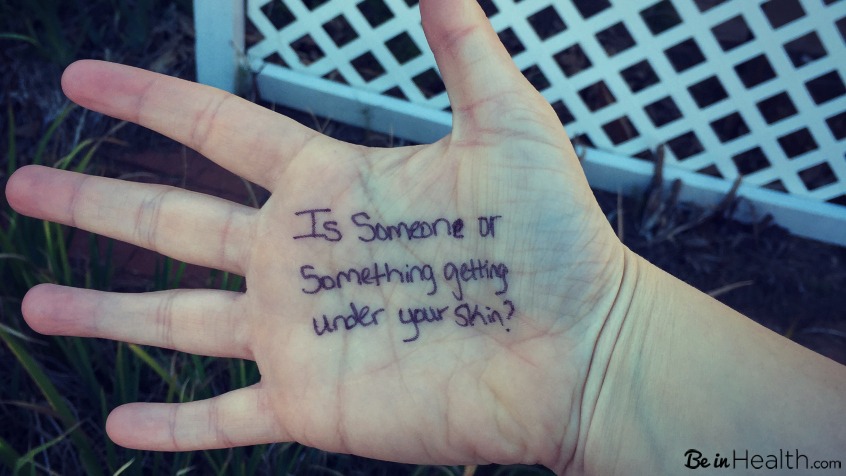 Is Someone or
Something getting
under your skin?
Be in Health.com